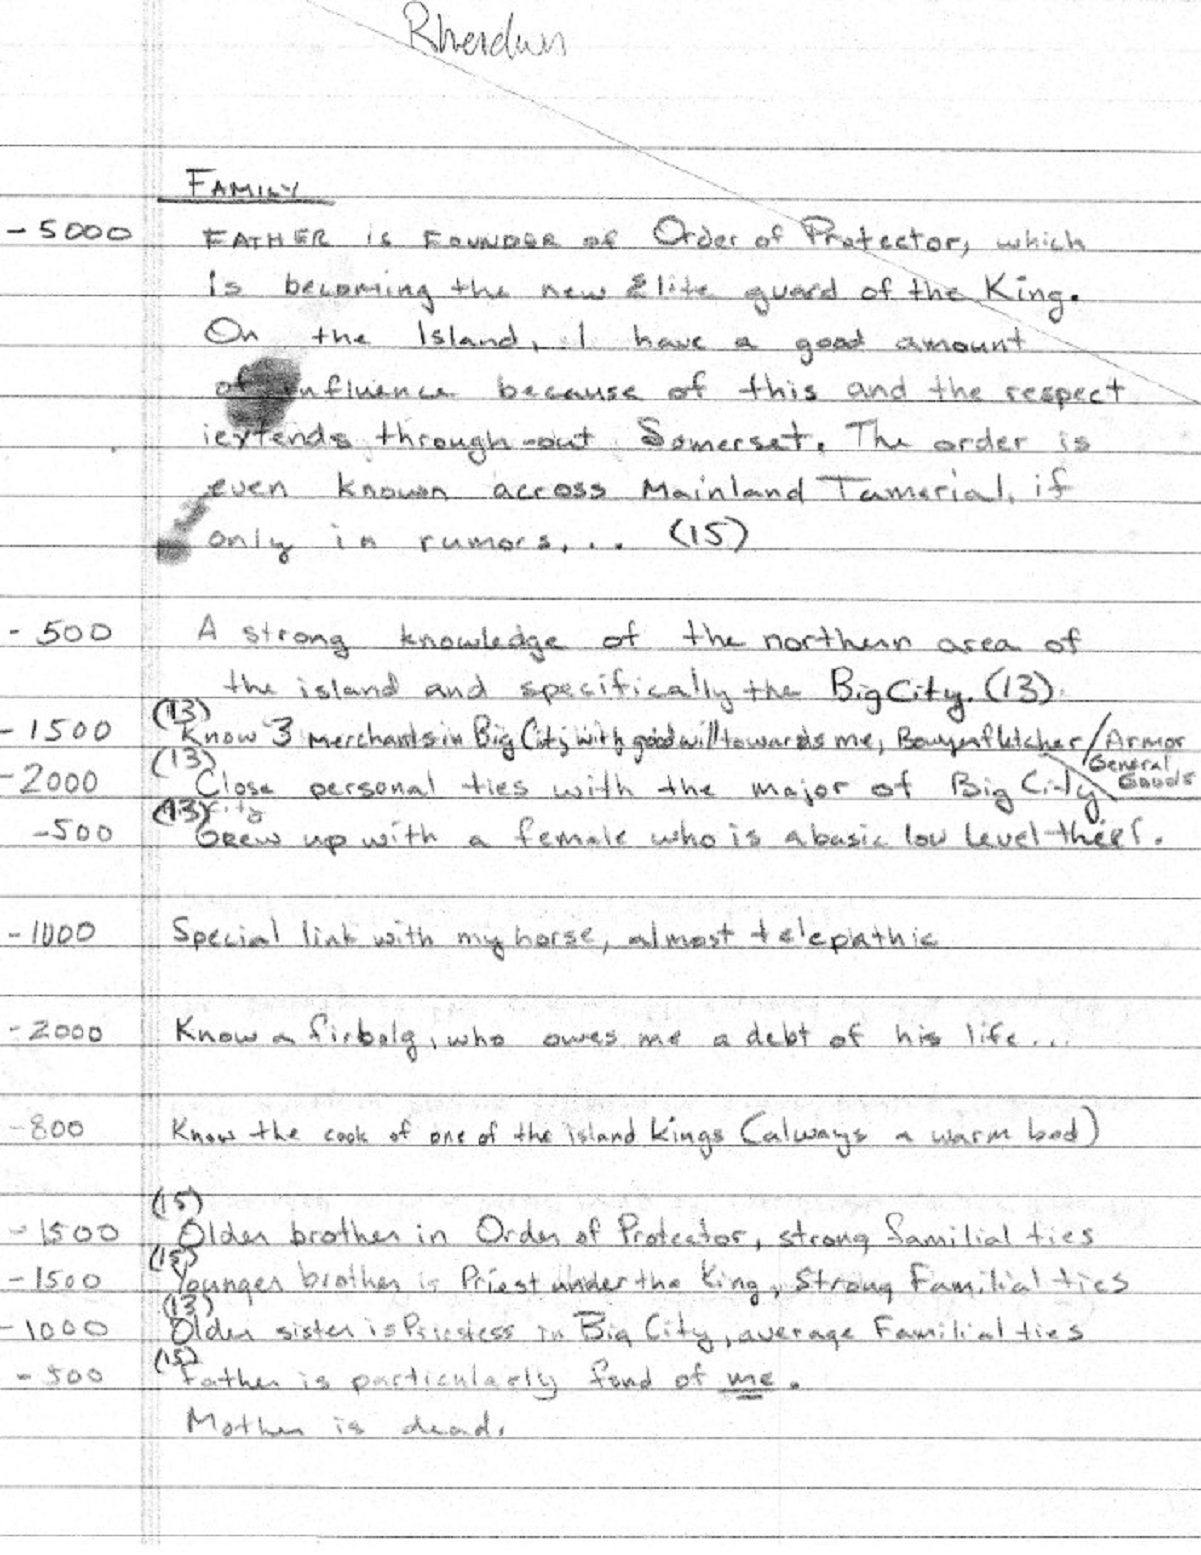 Rheidun
FAMILY
-5000 FATHER is FOUNDER of Order of Protector, which
is becoming the new Elite guard of the King.
On the Island, I have a good amount
of influence because of this and the respect
extends through-out Somerset. The order is
even known across Mainland Tamerial, if
only in rumors... (15)
-500 A strong knowledge of the northern area of
the island and specifically the Big City. (13)
-1500 (13) Know 3 merchants in Big City with good will towards me, Bowyer fletcher / Armor
General
Goods
-2000 (13) Close personal ties with the major of Big City
city
-500 (13) Grew up with a female who is a basic low level thief.
-1000 Special link with my horse, almost telepathic
-2000 Know a firbolg, who owes me a debt of his life...
-800 Know the cook of one of the island kings (always a warm bed)
(15)
-1500 Older brother in Order of Protector, strong familial ties
(15)
-1500 Younger brother is Priest under the King, Strong Familial ties
(13)
-1000 Older sister is Priestess in Big City, average Familial ties
(15)
-500 Father is particularly fond of me.
Mother is dead.